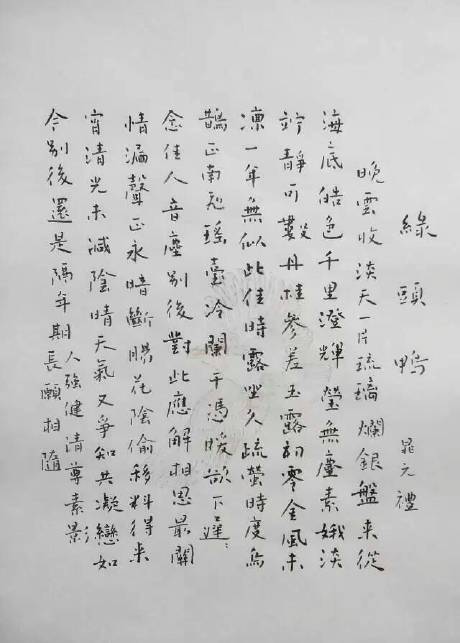 綠頭鴨 晁元禮
晚雲收淡天一片琉璃爛銀盤来從
海底皓色千里澄輝瑩無塵素娥淡
竚靜可數丹桂參差玉露初零金風未
凛一年無似此佳時露坐久疏螢時度烏
鵲正南飛瑤臺冷闌干憑暖欲下遲:
念佳人音塵別後對此應解相思最關
情漏聲正永暗斷腸花陰偷移料得来
宵清光未減陰晴天氣又爭知共凝戀如
今別後還是隔年期人強健清尊素景
長願相隨